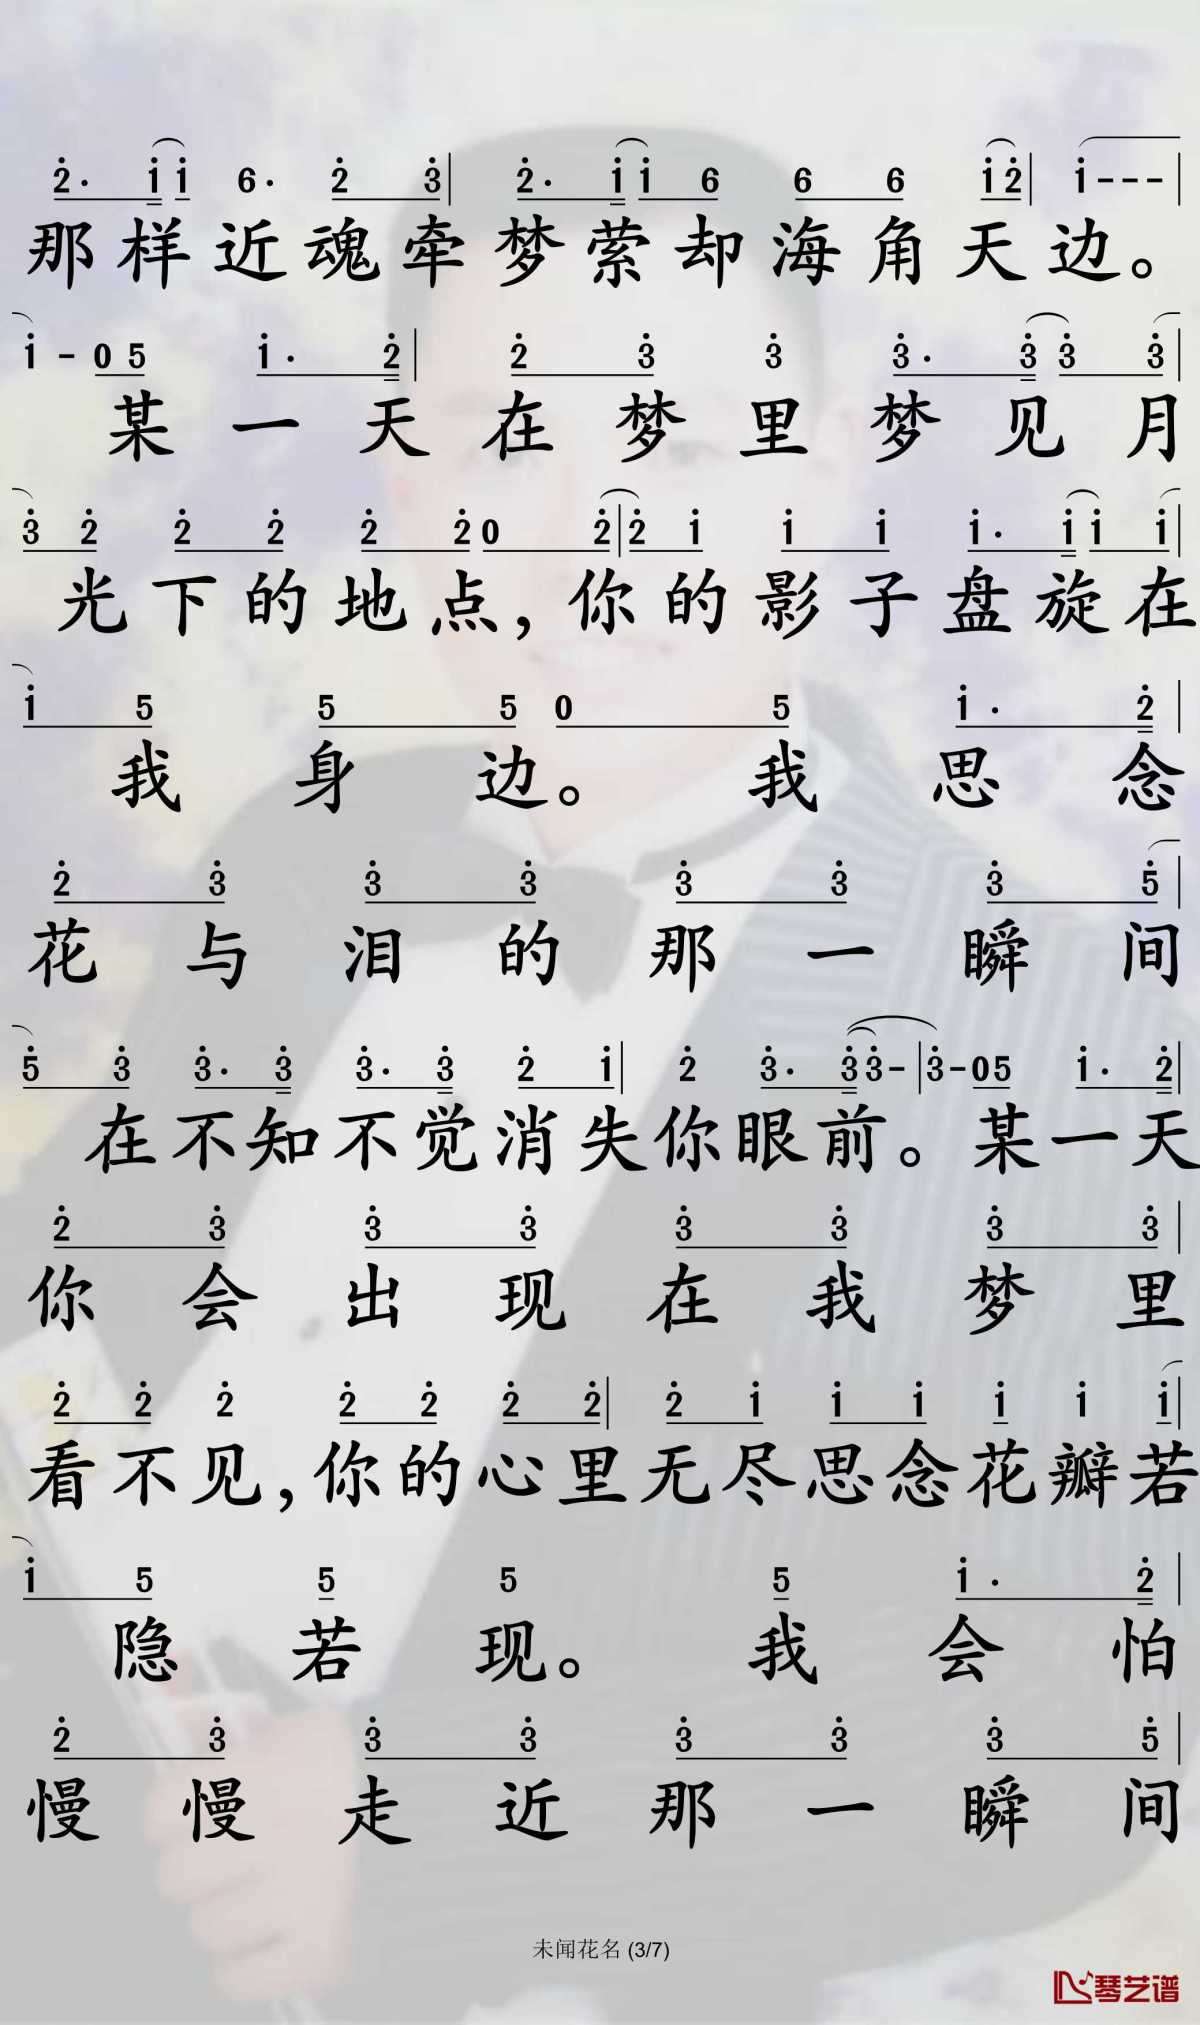 2̇· 1̇ 1̇ 6· 2̇ 3̇ | 2̇· 1̇ 1̇ 6 6 6 1̇ 2̇ | 1̇ - - - |
那样近魂牵梦萦却海角天边。
1̇ - 0 5 1̇· 2̇ | 2̇ 3̇ 3̇ 3̇· 3̇ 3̇ 3̇ |
某一天在梦里梦见月
3̇ 2̇ 2̇ 2̇ 2̇ 2̇ 0 2̇ | 2̇ 1̇ 1̇ 1̇ 1̇· 1̇ 1̇ 1̇ |
光下的地点,你的影子盘旋在
1̇ 5 5 5 0 5 1̇· 2̇ |
我身边。我思念
2̇ 3̇ 3̇ 3̇ 3̇ 3̇ 3̇ 5̇ |
花与泪的那一瞬间
5̇ 3̇ 3̇· 3̇ 3̇· 3̇ 2̇ 1̇ | 2̇ 3̇· 3̇ 3̇ - | 3̇ - 0 5 1̇· 2̇ |
在不知不觉消失你眼前。某一天
2̇ 3̇ 3̇ 3̇ 3̇ 3̇ 3̇ 3̇ |
你会出现在我梦里
2̇ 2̇ 2̇ 2̇ 2̇ 2̇ 2̇ | 2̇ 1̇ 1̇ 1̇ 1̇ 1̇ 1̇ |
看不见,你的心里无尽思念花瓣若
1̇ 5 5 5 5 1̇· 2̇ |
隐若现。我会怕
2̇ 3̇ 3̇ 3̇ 3̇ 3̇ 3̇ 5̇ |
慢慢走近那一瞬间
未闻花名 (3/7)
琴艺谱